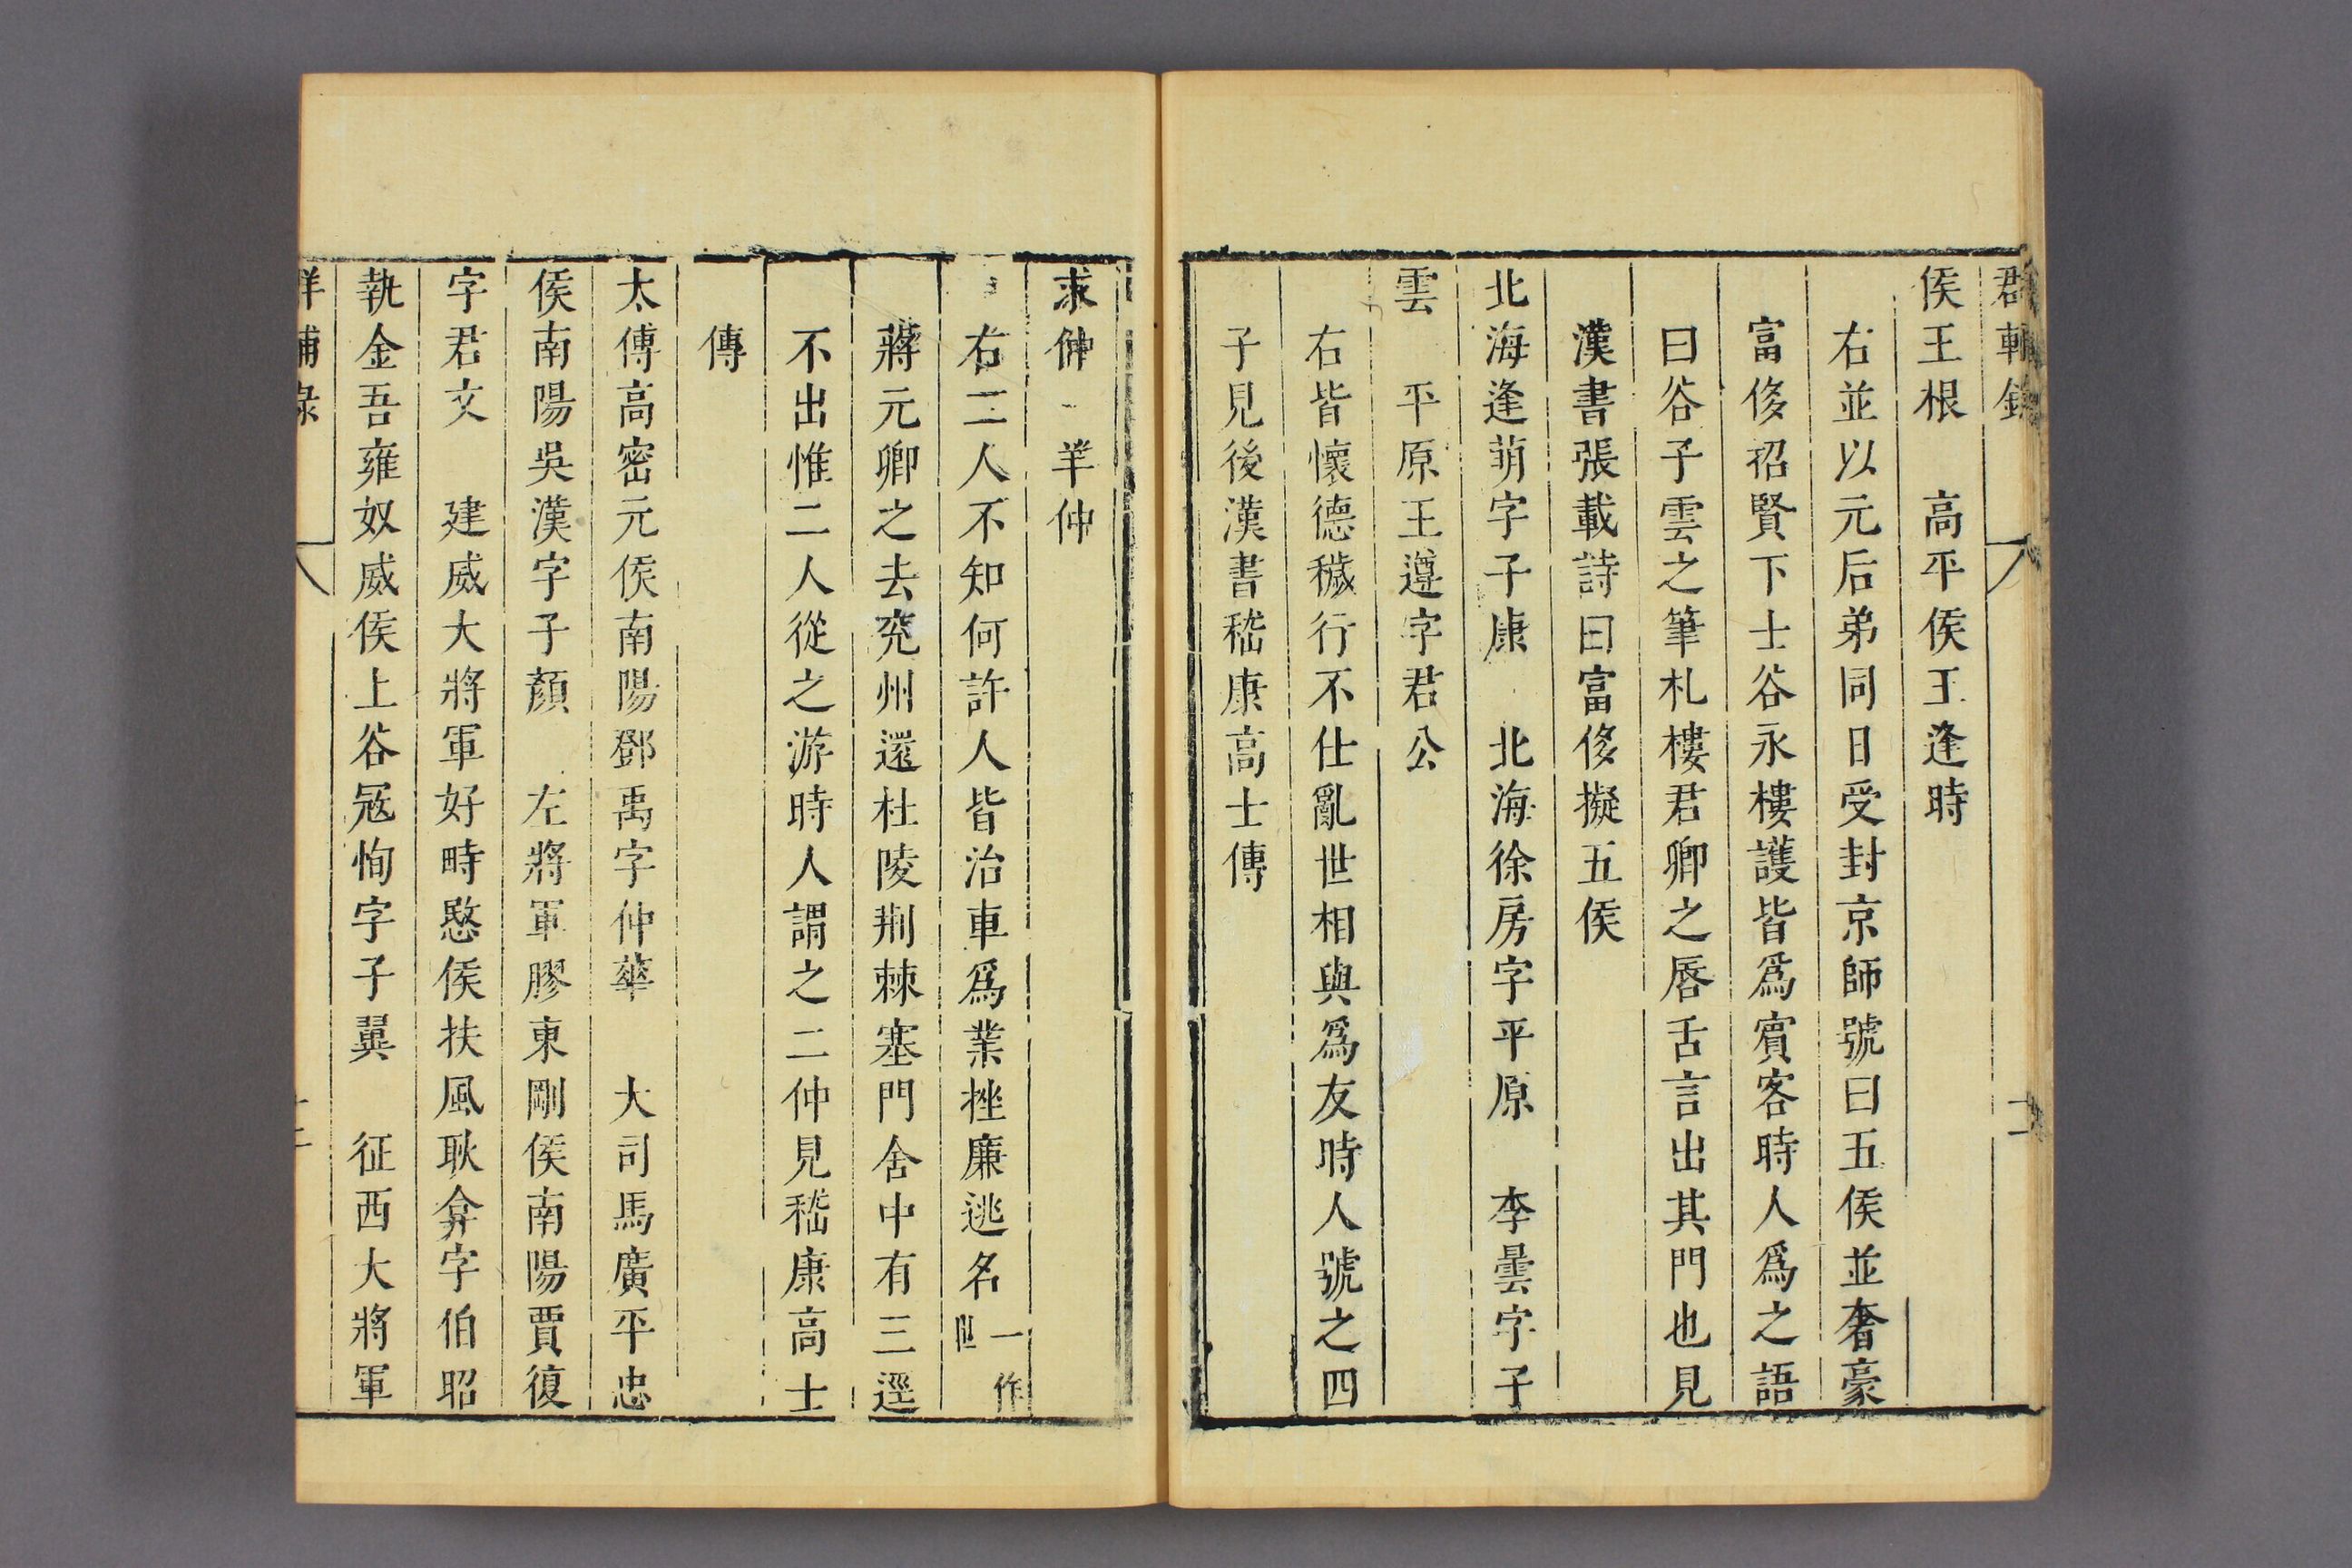 侯王根　高平侯王逢時
右並以元后弟同日受封京師號曰五侯並奢豪
富侈招賢下士谷永樓護皆爲賓客時人爲之語
曰谷子雲之筆札樓君卿之唇舌言出其門也見
漢書張載詩曰富侈擬五侯
北海逢萌字子康　北海徐房字平原　李曇字子
雲　平原王遵字君公
右皆懷德穢行不仕亂世相與爲友時人號之四
子見後漢書嵇康高士傳
求仲　羊仲
右二人不知何許人皆治車爲業挫廉逃名一作
蔣元卿之去兖州還杜陵荆棘塞門舍中有三逕
不出惟二人從之游時人謂之二仲見嵇康高士
傳
太傅高密元侯南陽鄧禹字仲華　大司馬廣平忠
侯南陽吳漢字子顏　左將軍膠東剛侯南陽賈復
字君文　建威大將軍好畤愍侯扶風耿弇字伯昭
執金吾雍奴威侯上谷冦恂字子翼　征西大將軍